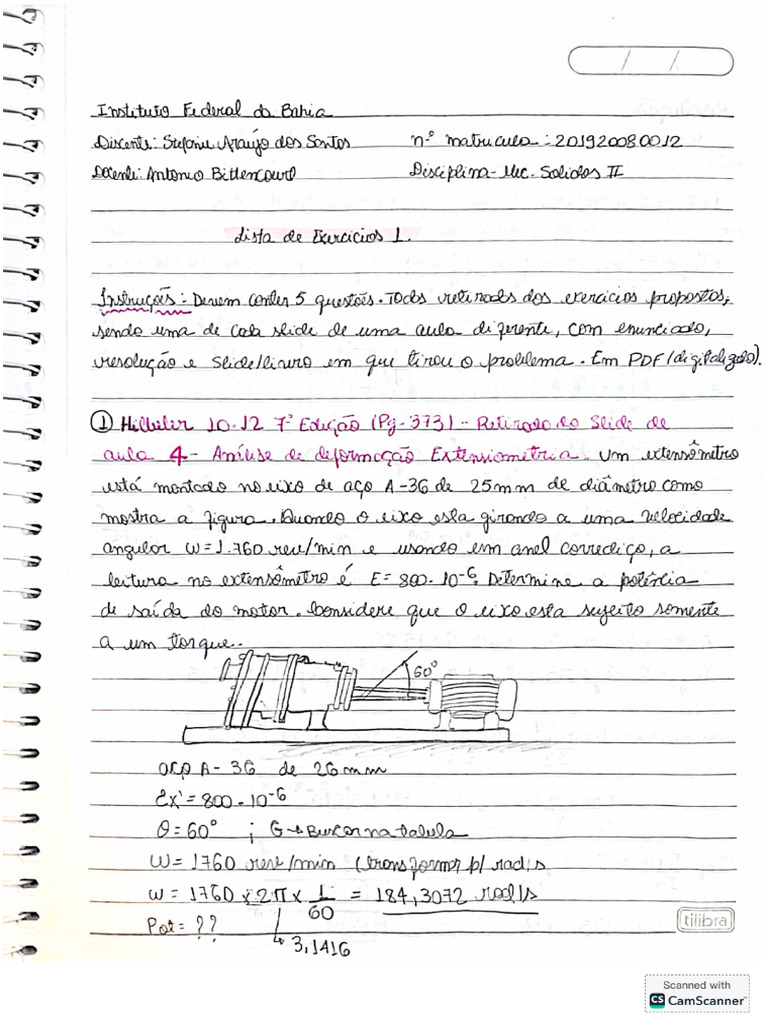 / /
Instituto Federal da Bahia
Discente: Stefanie Araújo dos Santos nº matricula: 201920080012
Docente: Antonio Bittencourt Disciplina - Mec. Solidos II
Lista de Exercicios 1.
Instruções: Devem conter 5 questões. Todas retiradas dos exercicios propostos,
sendo uma de cada slide de uma aula diferente, com enunciado,
resolução e slide/livro em que tirou o problema. Em PDF (digitalizado).
① Hibbeler 10-12 7ª Edição (Pg-373) - Retirado do Slide de
aula 4 - Análise de deformação Extensiometria. Um extensômetro
está montado no eixo de aço A-36 de 25mm de diâmetro como
mostra a figura. Quando o eixo esta girando a uma velocidade
angular W = 1.760 rev/min e usando um anel corrediço, a
leitura no extensômetro é E = 800.10-6. Determine a potência
de saída do motor. Considere que o eixo esta sujeito somente
a um torque..
60°
aço A-36 de 26mm
Ex' = 800.10-6
θ = 60° ; G → Buscar na tabela
W = 1760 rev/min (transformar p/ rad/s
w = 1760 x 2π x 1/60 = 184,3072 rad/s
Pot = ??
↳ 3,1416
tilibra
Scanned with
CS CamScanner